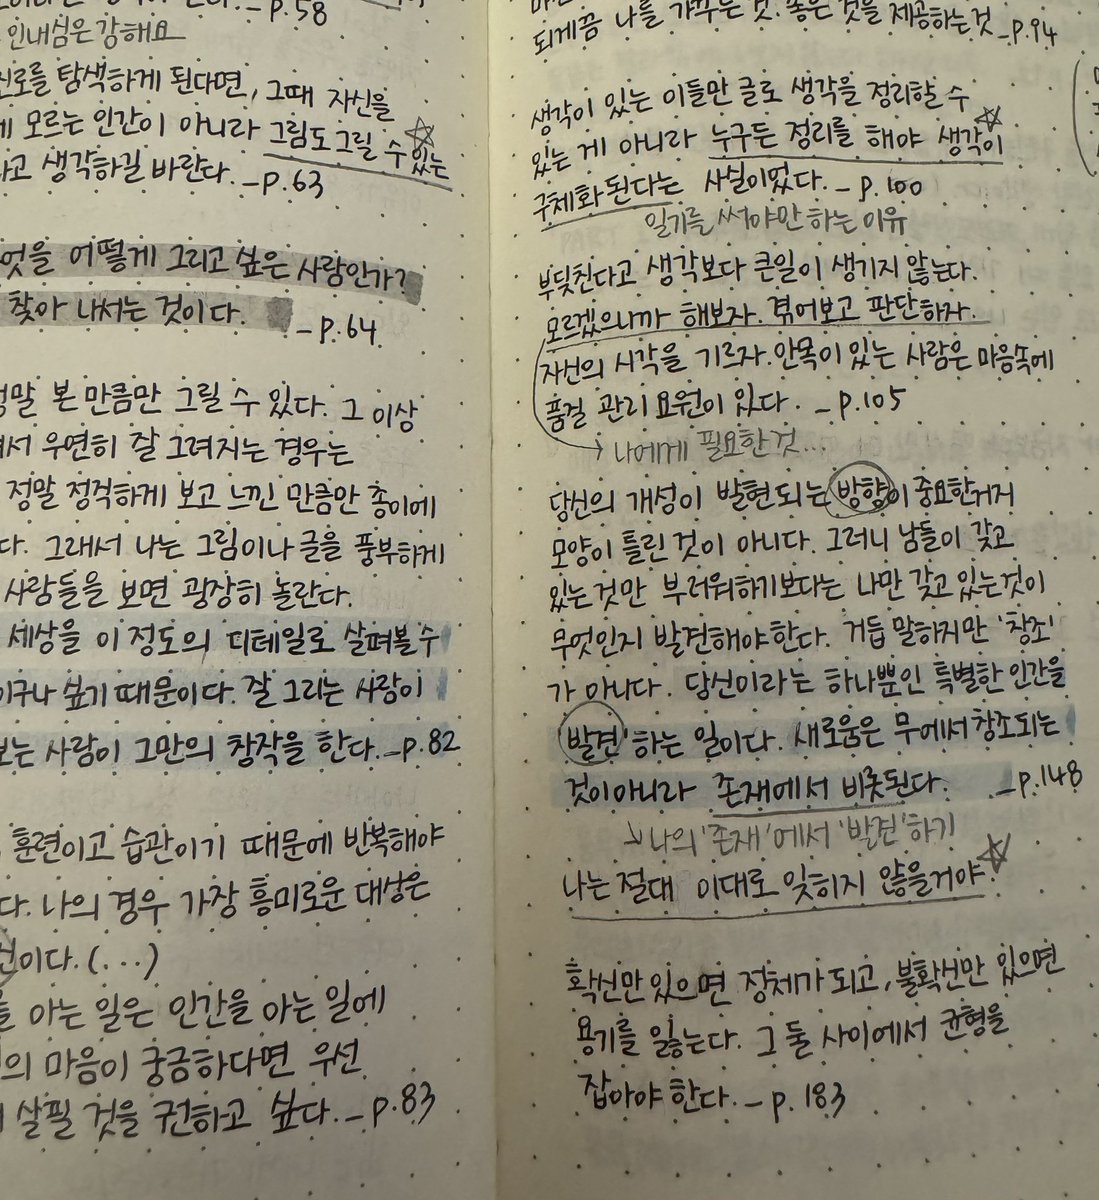 – p.58
인내심은 강해요
진로를 탐색하게 된다면, 그때 자신을
모르는 인간이 아니라 그림도 그릴 수 있는
생각하길 바란다. – p.63
어떻게 그리고 싶은 사람인가?
찾아 나서는 것이다. – p.64
본 만큼만 그릴 수 있다. 그 이상
우연히 잘 그려지는 경우는
정말 정직하게 보고 느낀 만큼만 종이에
그래서 나는 그림이나 글을 풍부하게
사람들을 보면 굉장히 놀란다.
세상을 이 정도의 디테일로 살펴볼 수
싶기 때문이다. 잘 그리는 사람이
보는 사람이 그만의 창작을 한다. – p.82
훈련이고 습관이기 때문에 반복해야
나의 경우 가장 흥미로운 대상은
(...)
아는 일은 인간을 아는 일에
마음이 궁금하다면 우선
살필 것을 권하고 싶다. – p.83
되게끔 나를 가꾸는 것. 좋은 것을 제공하는 것 – p.94
생각이 있는 이들만 글로 생각을 정리할 수
있는 게 아니라 누구든 정리를 해야 생각이
구체화된다는 사실이었다. – p.100
일기를 써야만 하는 이유
부딪친다고 생각보다 큰일이 생기지 않는다.
모르겠으니까 해보자. 겪어보고 판단하자.
자신의 시각을 기르자. 안목이 있는 사람은 마음속에
품질 관리 요원이 있다. – p.105
→ 나에게 필요한 것...
당신의 개성이 발현되는 방향이 중요한거지
모양이 틀린 것이 아니다. 그러니 남들이 갖고
있는 것만 부러워하기보다는 나만 갖고 있는 것이
무엇인지 발견해야 한다. 거듭 말하지만 '창조'
가 아니다. 당신이라는 하나뿐인 특별한 인간을
'발견'하는 일이다. 새로움은 무에서 창조되는
것이 아니라 존재에서 비롯된다. – p.148
→ 나의 '존재'에서 '발견'하기
나는 절대 이대로 잊히지 않을거야
확신만 있으면 정체가 되고, 불확신만 있으면
용기를 잃는다. 그 둘 사이에서 균형을
잡아야 한다. – p.183